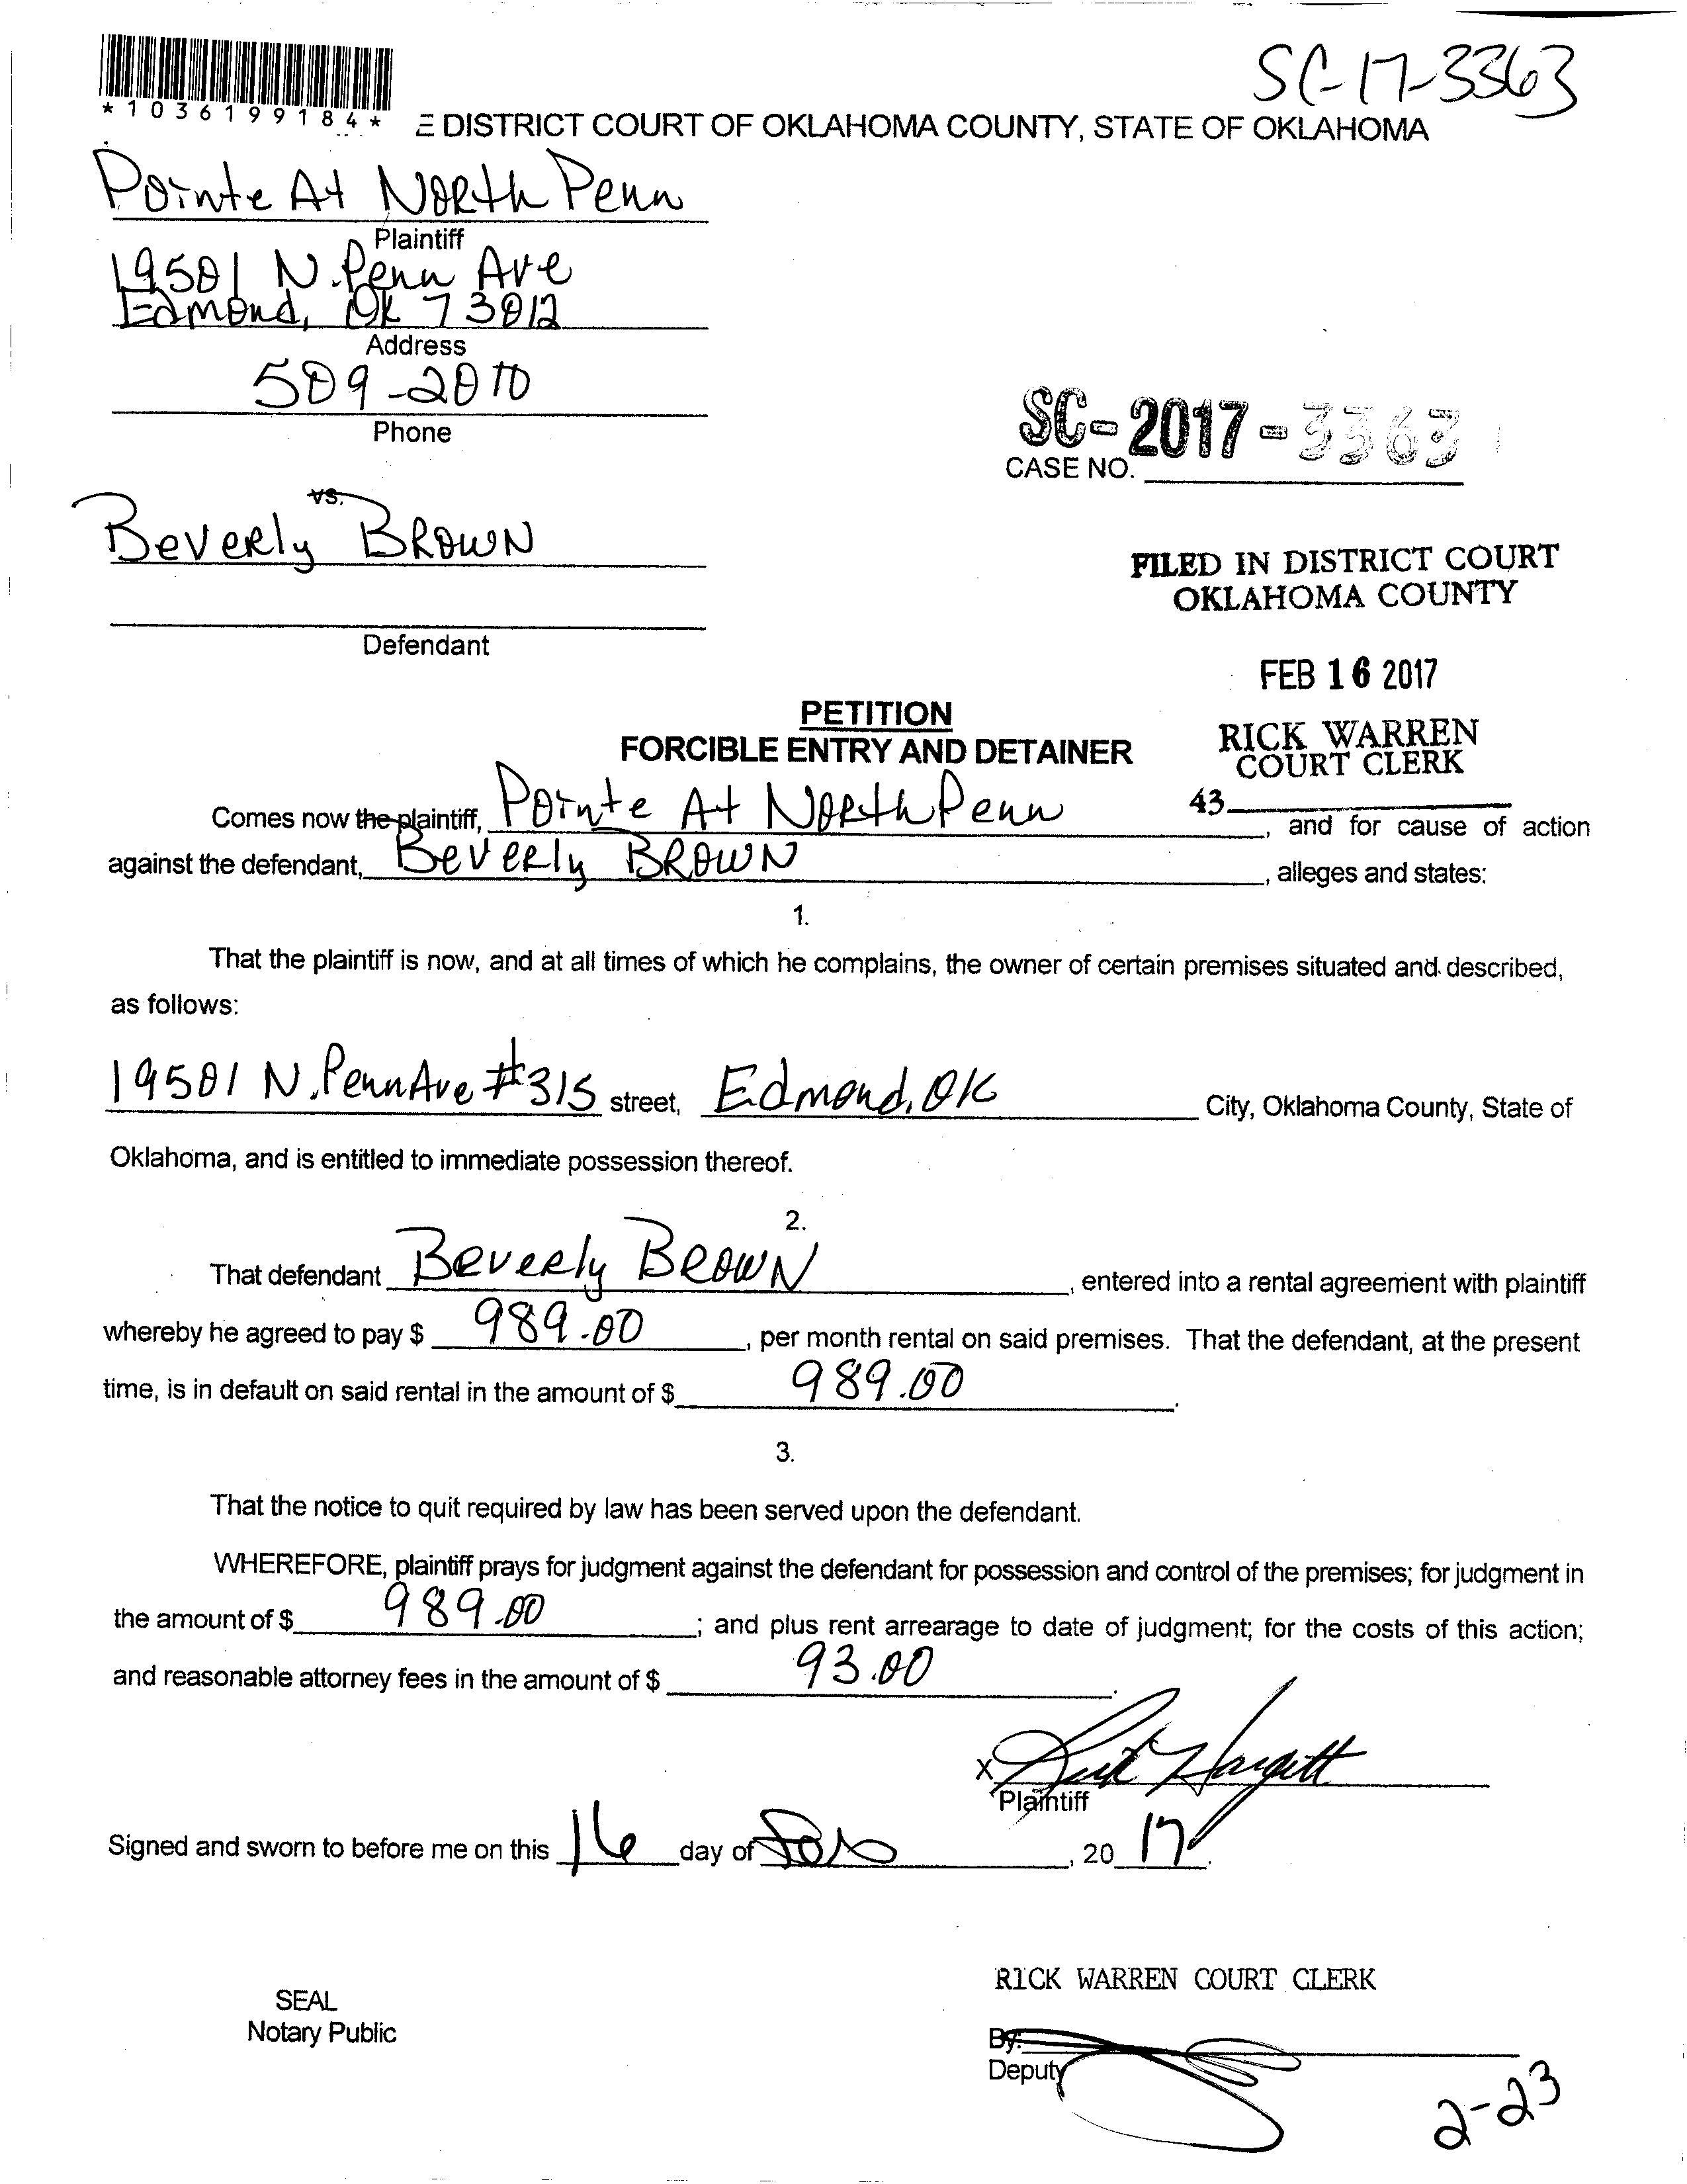 SC-17-3363
*1036199184*
E DISTRICT COURT OF OKLAHOMA COUNTY, STATE OF OKLAHOMA
Pointe At North Penn
Plaintiff
19501 N. Penn Ave
Edmond, Ok 73012
Address
509-2010
Phone
SC-2017-3363
CASE NO.
vs.
Beverly Brown
FILED IN DISTRICT COURT
OKLAHOMA COUNTY
Defendant
FEB 16 2017
PETITION
FORCIBLE ENTRY AND DETAINER
RICK WARREN
COURT CLERK
43
Comes now the plaintiff, Pointe At North Penn, and for cause of action
against the defendant, Beverly Brown, alleges and states:
1.
That the plaintiff is now, and at all times of which he complains, the owner of certain premises situated and described,
as follows:
19501 N. Penn Ave #315 street, Edmond, OK City, Oklahoma County, State of
Oklahoma, and is entitled to immediate possession thereof.
2.
That defendant Beverly Brown, entered into a rental agreement with plaintiff
whereby he agreed to pay $ 989.00, per month rental on said premises. That the defendant, at the present
time, is in default on said rental in the amount of $ 989.00.
3.
That the notice to quit required by law has been served upon the defendant.
WHEREFORE, plaintiff prays for judgment against the defendant for possession and control of the premises; for judgment in
the amount of $ 989.00; and plus rent arrearage to date of judgment; for the costs of this action;
and reasonable attorney fees in the amount of $ 93.00.
X Hargett
Plaintiff
Signed and sworn to before me on this 16 day of Feb, 20 17.
RICK WARREN COURT CLERK
SEAL
Notary Public
By:
Deputy
2-23